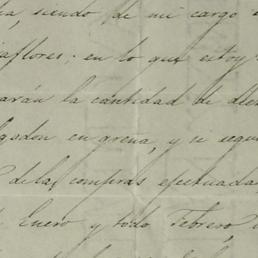 siendo de mi cargo
aflores; en lo que estoy
arán la cantidad de
algodon en greña, y si
de las compras efectuadas
Enero y todo Febrero,